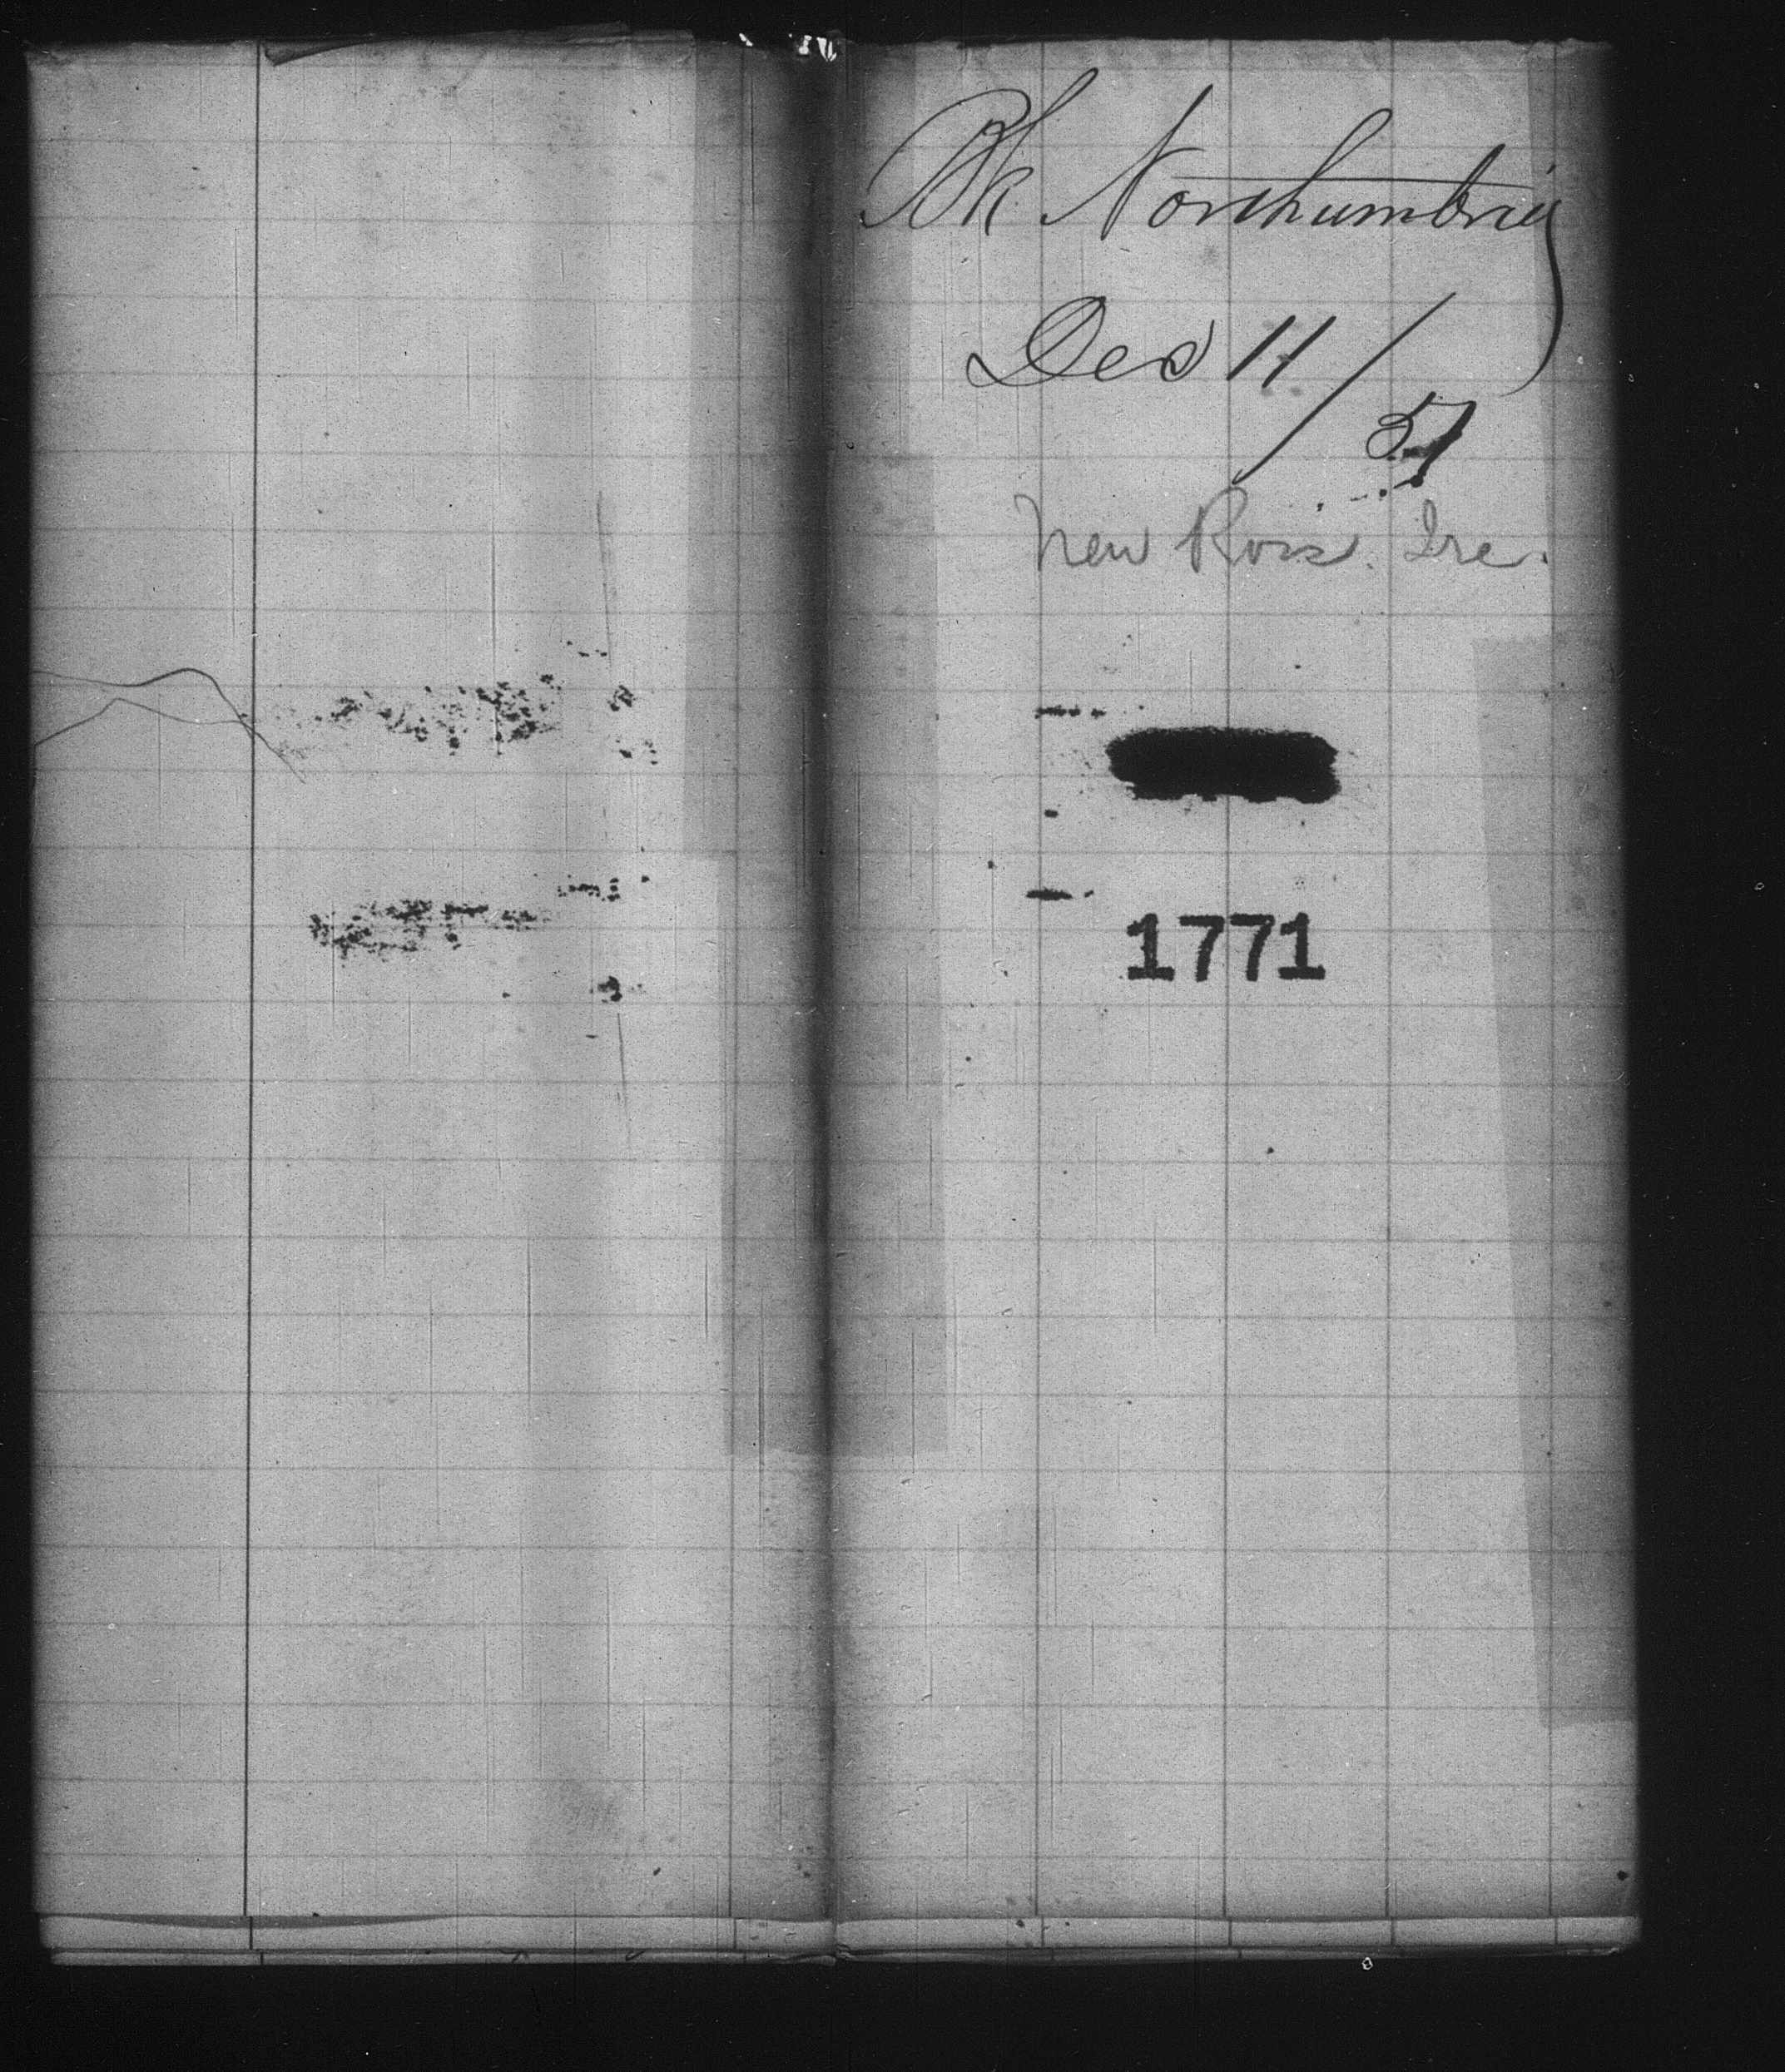 Bk Northumbria
Dec 11/51
New Ross. Ire.
1771